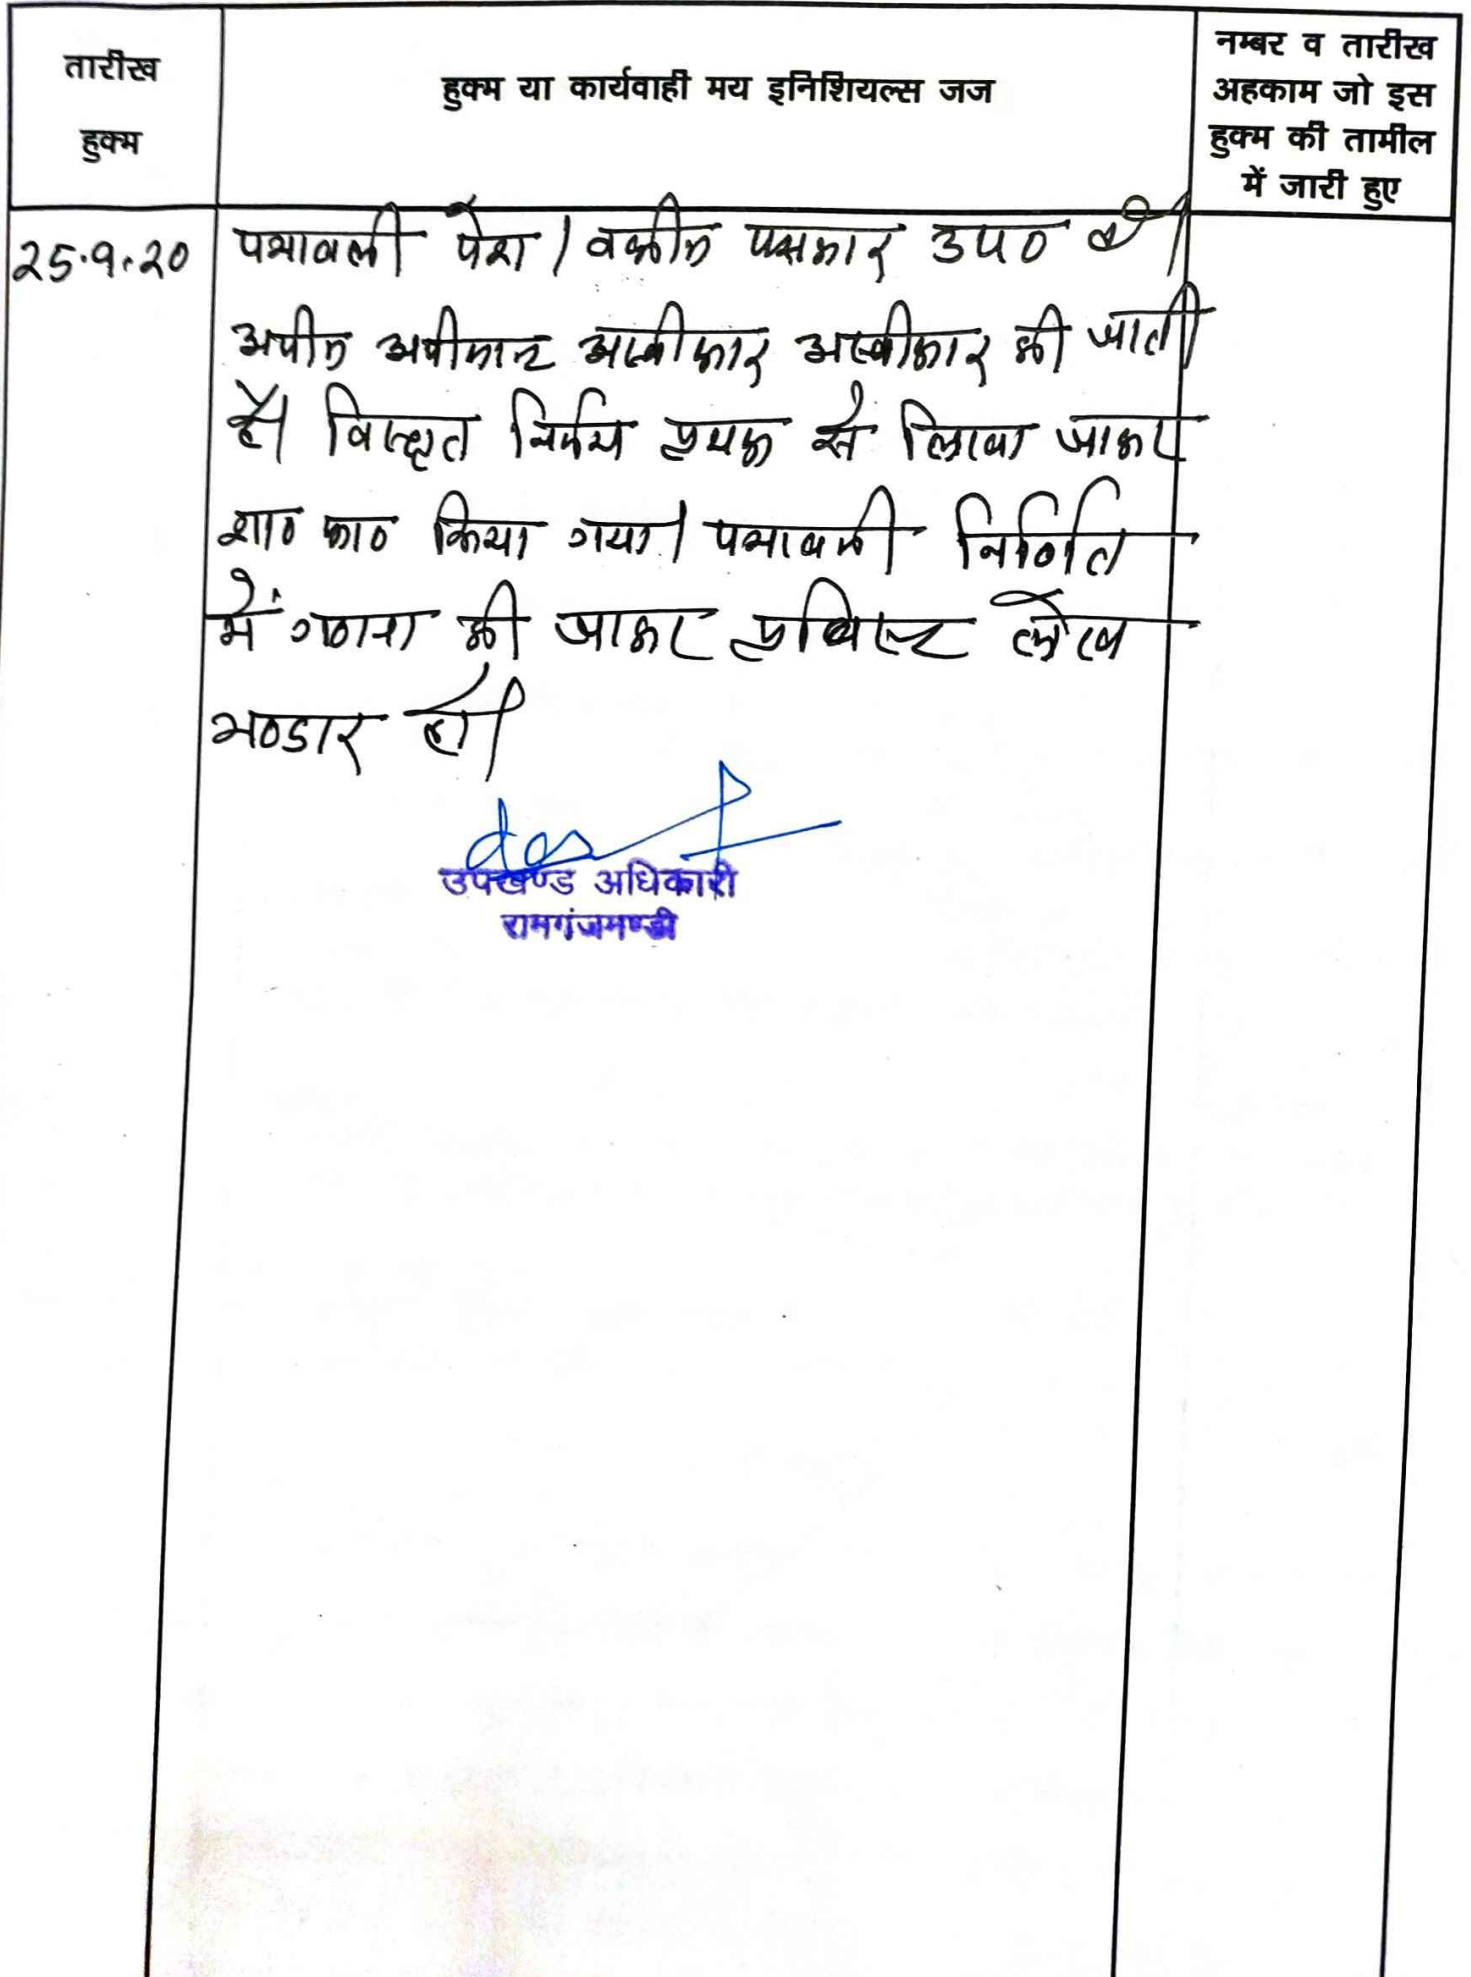 तारीख
हुक्म
हुक्म या कार्यवाही मय इनिशियल्स जज
नम्बर व तारीख
अहकाम जो इस
हुक्म की तामील
में जारी हुए
25.9.20
पत्रावली पेश। वकील पक्षकार उप० है।
अपील अपीलान्ट अस्वीकार अस्वीकार की जाती
है। विस्तृत निर्णय पृथक से लिखा जाकर
शा० का० किया गया। पत्रावली निर्णित
में गणना की जाकर प्रविष्ट लेख
भण्डार हो।
उपखण्ड अधिकारी
रामगंजमण्डी